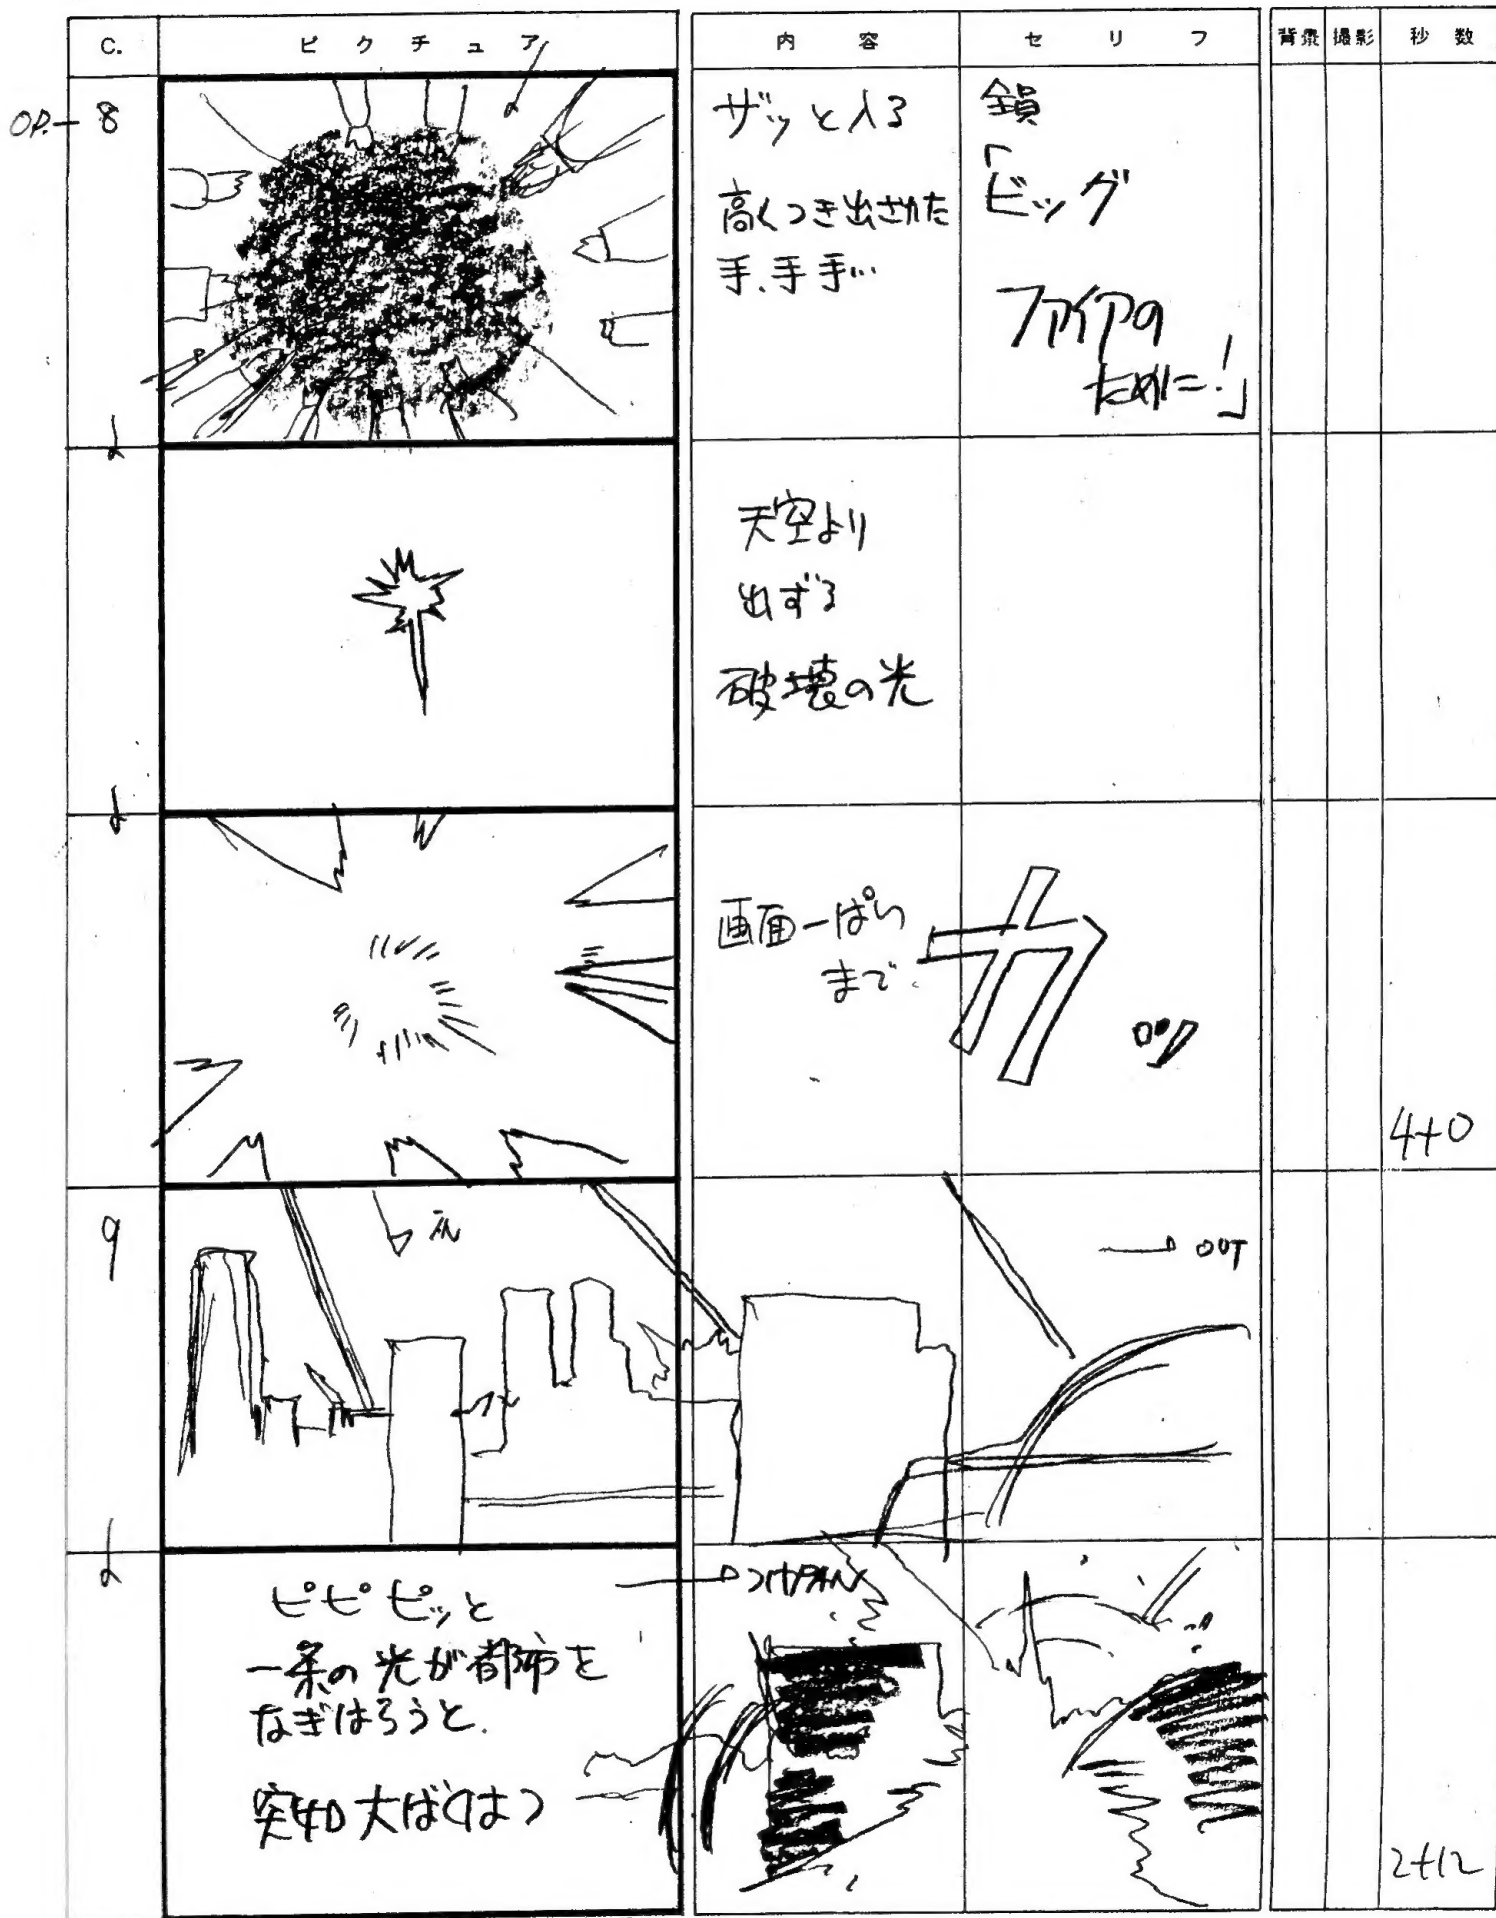 C.
ピクチュア
内容
セリフ
背景
撮影
秒数
OP.
8
ザッと入る
高くつき出された
手、手手…
鎖
「ビッグ
ファイアの
ために!」
天空より
出ずる
破壊の光
画面一ぱい
まで
カッ
4+0
9
→ OUT
ピピピッと
一条の光が都市を
なぎはろうと
突如大ばくはつ
PAN
2+12